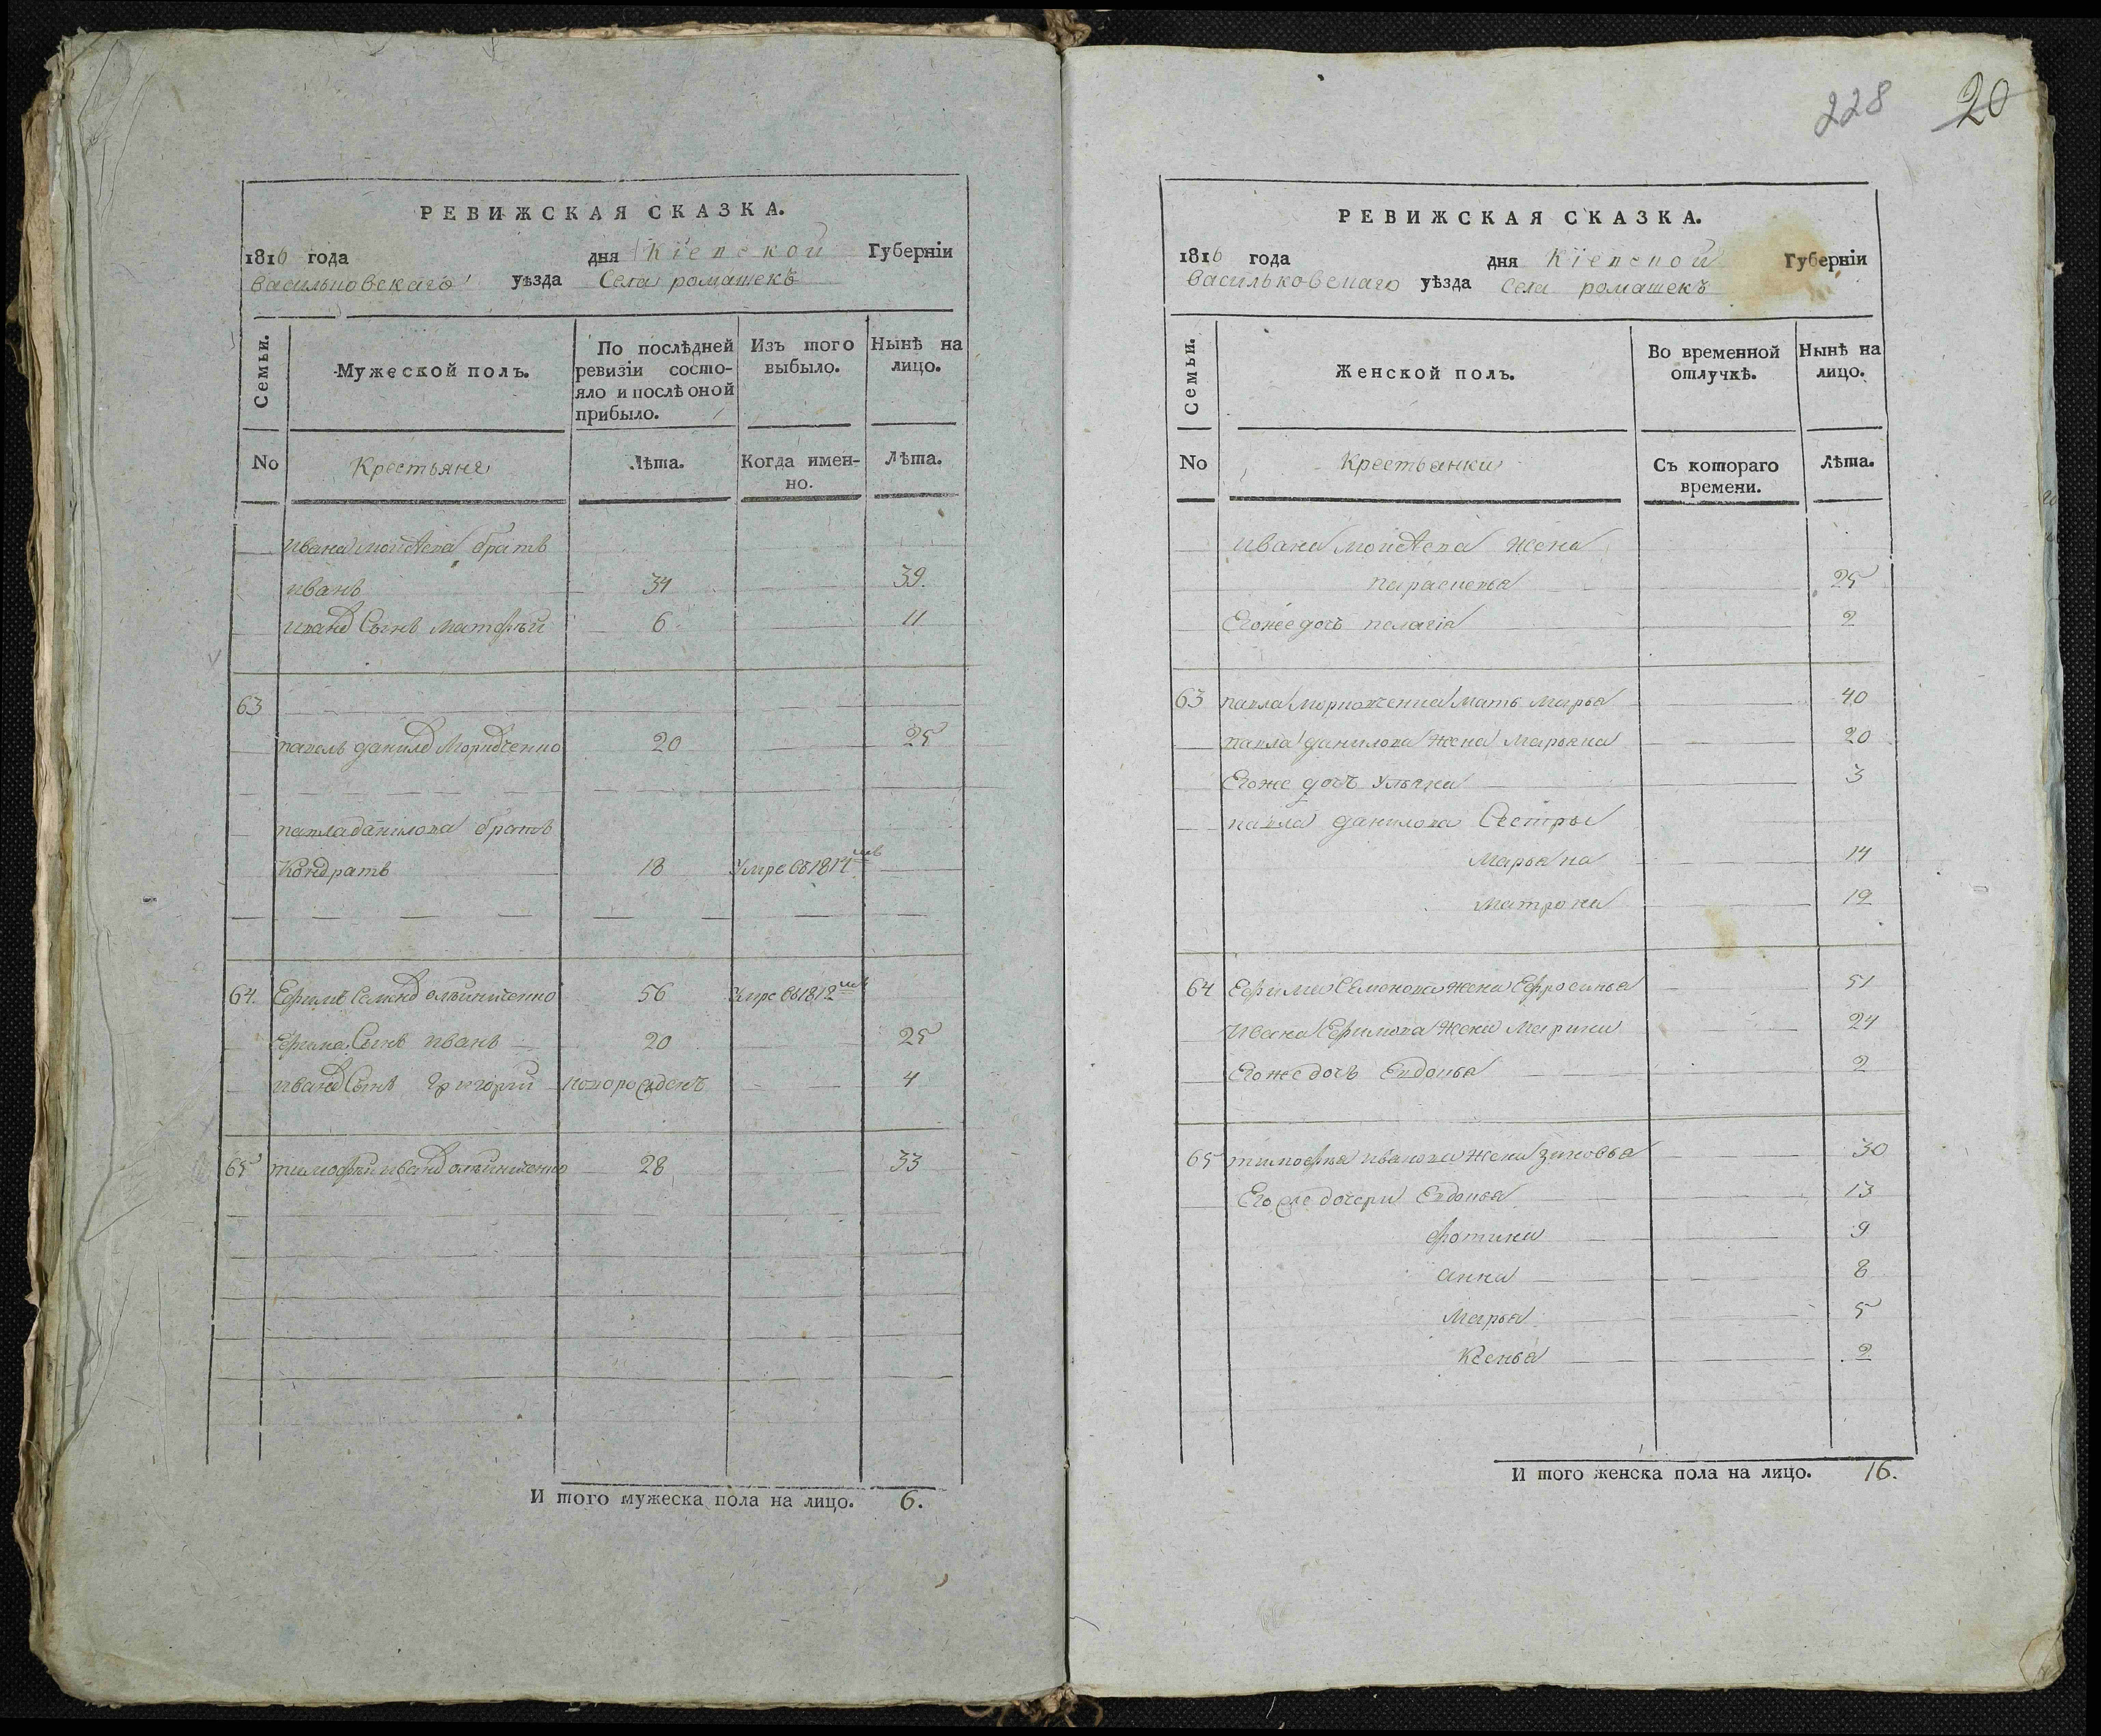 РЕВИЖСКАЯ СКАЗКА.
1816 года дня Кіевской Губерніи
Васильковскаго уѣзда Села ромашекъ
Семьи.
Мужеской полъ.
По послѣдней ревизіи состо-
яло и послѣ оной
прибыло.
Изъ того
выбыло.
Нынѣ на
лицо.
No Крестьяне Лѣта. Когда имен-
но. Лѣта.
Ивана братъ
иванъ 34 39.
иванов Сынъ Матфѣй 6 11
63
павелъ данилов 20 25
павла данилова братъ
Кондратъ 18 Умре въ 1814мъ
64. Ефимъ Семенов 56 Умре въ 1812мъ
Ефима Сынъ иванъ 20 25
иванов Сынъ григорій новорожденъ 4
65 тимофѣй иванов 28 33
И того мужеска пола на лицо. 6.
228 20
РЕВИЖСКАЯ СКАЗКА.
1816 года дня Кіевской Губерніи
Васильковскаго уѣзда Села ромашекъ
Семьи.
Женской полъ.
Во временной
отлучкѣ.
Нынѣ на
лицо.
No Крестьянки Съ котораго
времени. Лѣта.
ивана жена
парасковья 25
Егоже дочь пелагія 2
63 павла мать Марья 40
павла данилова жена Марьяна 20
Егоже дочь Ульяна 3
павла данилова Сестры
Марьяна 14
Матрона 12
64 Ефима Семенова жена Ефросинья 51
Ивана Ефимова жена Марина 24
Егоже дочь Евдокья 2
65 тимофея иванова жена зиновья 30
Егоже дочери Евдокья 13
фотина 9
анна 8
Марья 5
Ксенья 2
И того женска пола на лицо. 16.